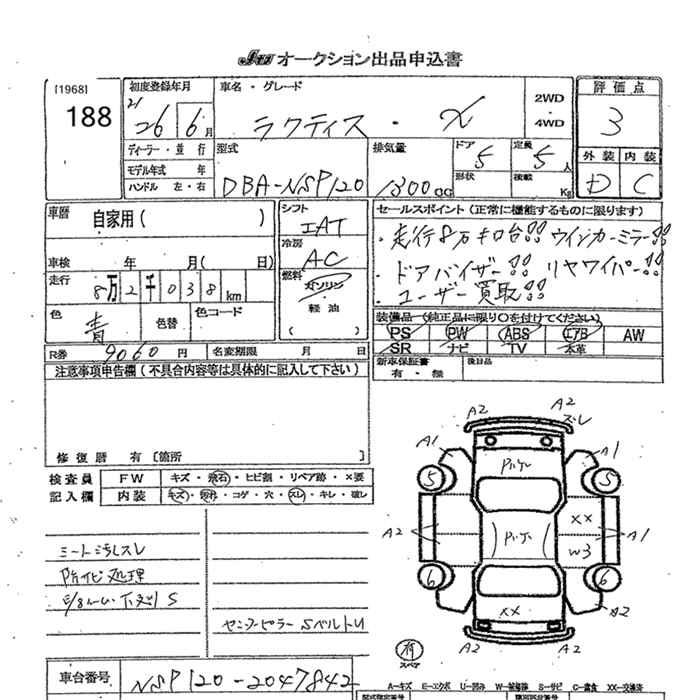 JU オークション出品申込書
[1968]
188
初度登録年月
21 26 6月
車名・グレード
ラクティス・X
2WD
・
4WD
評価点
3
ディーラー・並行
モデル年式 年
ハンドル 左・右
型式
DBA-NSP120
排気量
1300CC
ドア
5
形状
定員
5人
積載
Kg
外装 内装
D C
車歴
自家用( )
シフト
IAT
冷房
AC
燃料
ガソリン
・
軽油
( )
セールスポイント(正常に機能するものに限ります)
・走行8万キロ台!! ウインカーミラー!!
・ドアバイザー!! リヤワイパー!!
・ユーザー買取!!
車検 年 月( 日)
走行
8万2千038km
色
青
色替
色コード
装備品(純正品に限り○を付けてください)
PS PW ABS エアB AW
SR ナビ TV 本革
R券 9060円
名変期限 月 日
新車保証書
有・無
後日品
注意事項申告欄(不具合内容等は具体的に記入して下さい)
修復歴 有〔箇所 〕
検査員
記入欄
FW キズ・飛石・ヒビ割・リペア跡・×要
内装 キズ・汚れ・コゲ・穴・スレ・キレ・破レ
シート汚レスレ
防サビ処理
S
センターピラー Sベルト
A2
A2
ズレ
A1
A1
5
5
A2
A1
XX
W3
6
6
XX
A2
A2
A2
有
スペア
車台番号
NSP120-2047842
A=キズ E=エクボ U=凹み W=補修跡 S=サビ C=腐食 XX=交換済